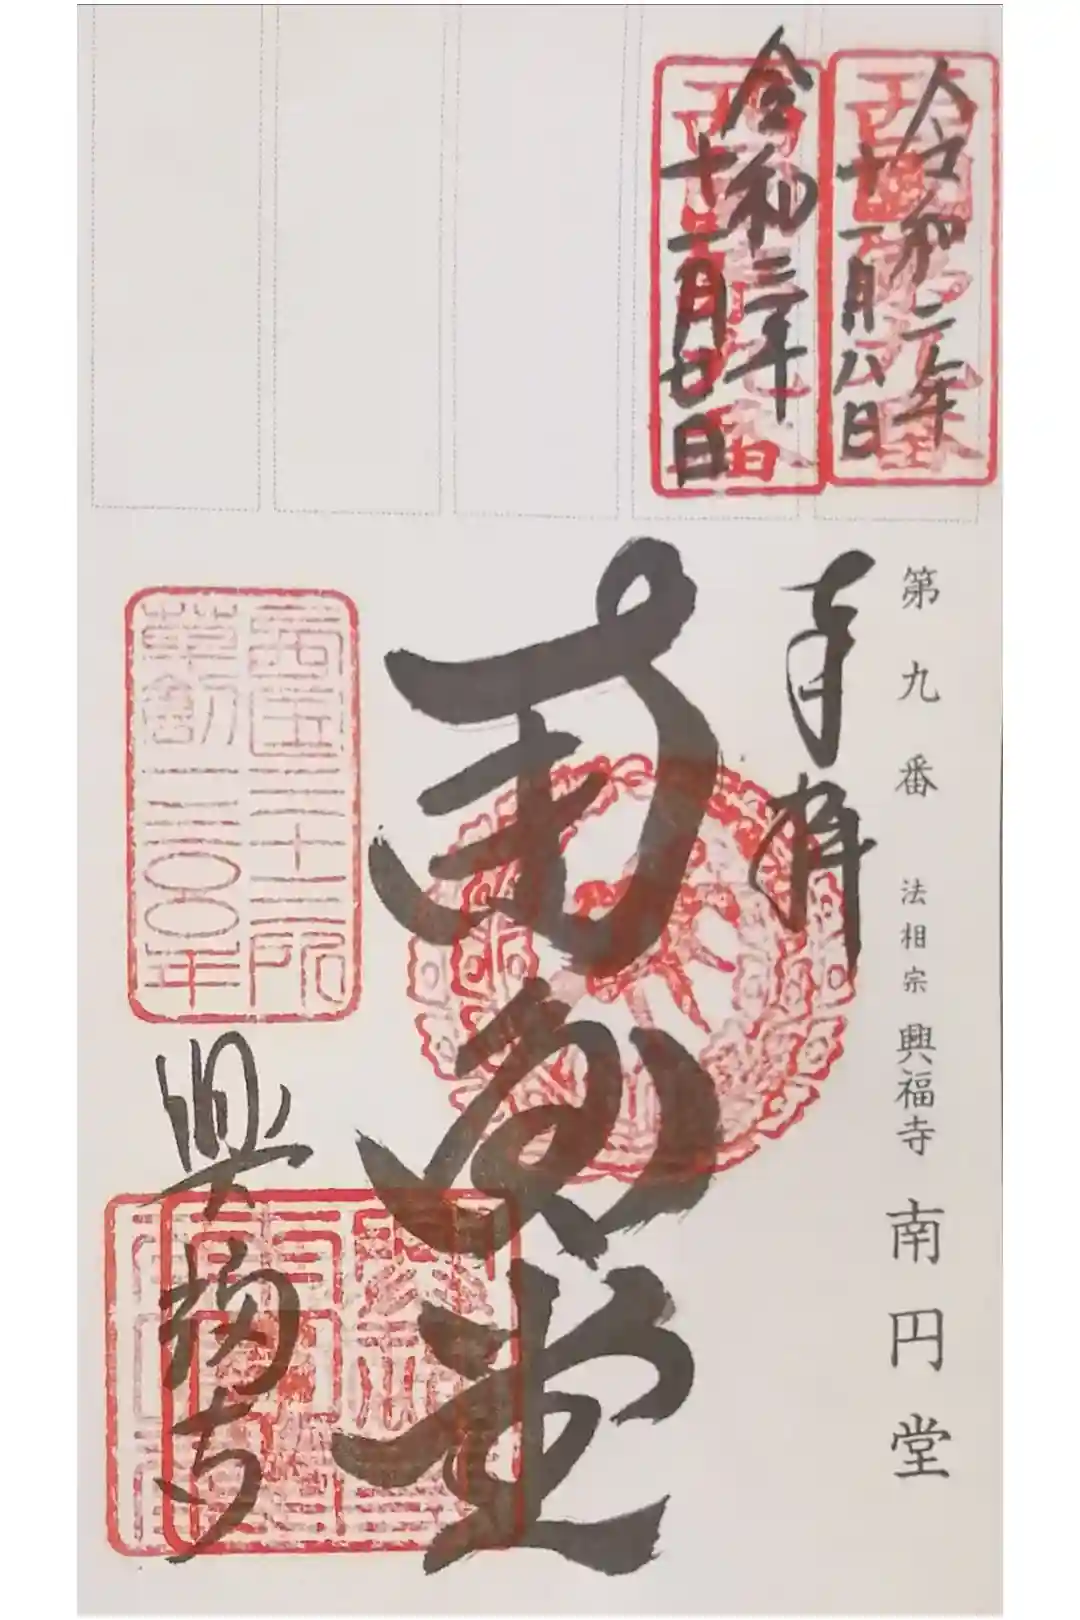 令和二年
十一月八日
令和三年
十二月廿日
第九番 法相宗 興福寺 南円堂
奉拝
南円堂
西国三十三所
草創一三〇〇年
興福寺